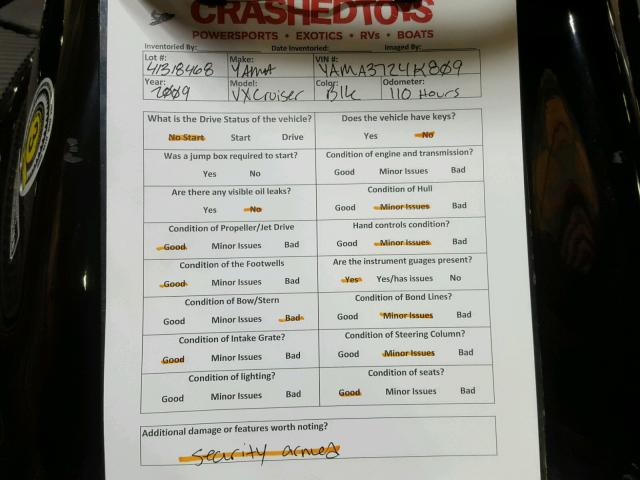 CRASHEDTOYS
POWERSPORTS • EXOTICS • RVs • BOATS
Inventoried By: Date Inventoried: Imaged By:
Lot #: Make: VIN #:
41318468 YAMA YAMA3724K809
Year: Model: Color: Odometer:
2009 VXCruiser Blk 110 Hours
What is the Drive Status of the vehicle? Does the vehicle have keys?
No Start Start Drive Yes No
Was a jump box required to start? Condition of engine and transmission?
Yes No Good Minor Issues Bad
Are there any visible oil leaks? Condition of Hull
Yes No Good Minor Issues Bad
Condition of Propeller/Jet Drive Hand controls condition?
Good Minor Issues Bad Good Minor Issues Bad
Condition of the Footwells Are the instrument guages present?
Good Minor Issues Bad Yes Yes/has issues No
Condition of Bow/Stern Condition of Bond Lines?
Good Minor Issues Bad Good Minor Issues Bad
Condition of Intake Grate? Condition of Steering Column?
Good Minor Issues Bad Good Minor Issues Bad
Condition of lighting? Condition of seats?
Good Minor Issues Bad Good Minor Issues Bad
Additional damage or features worth noting?
security armed